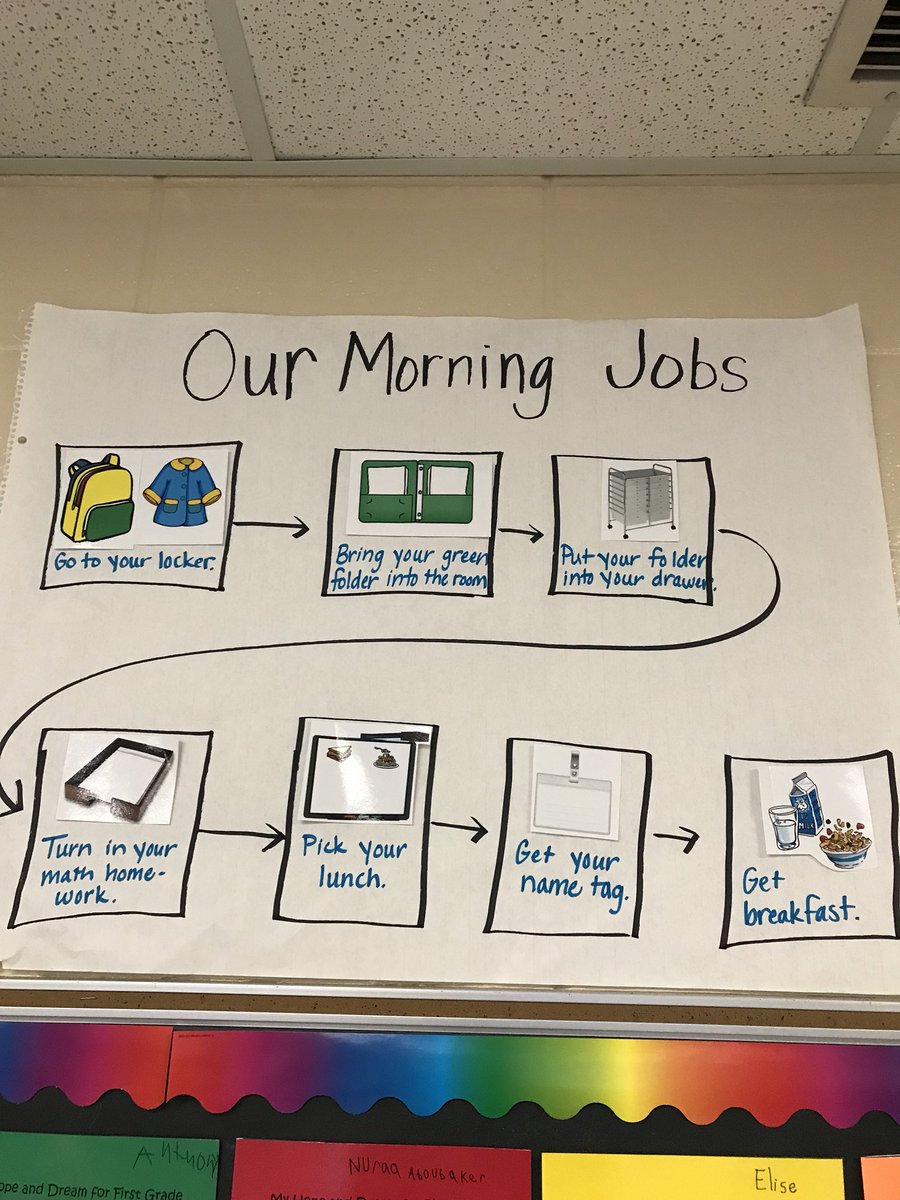 Our Morning Jobs
Go to your locker.
Bring your green
folder into the room
Put your folder
into your drawer.
Turn in your
math home-
work.
Pick your
lunch.
Get your
name tag.
Get
breakfast.
MILK
Anthony
Hope and Dream for First Grade
Nuraa Aboubaker
My Hope and Dream for First Grade
Elise